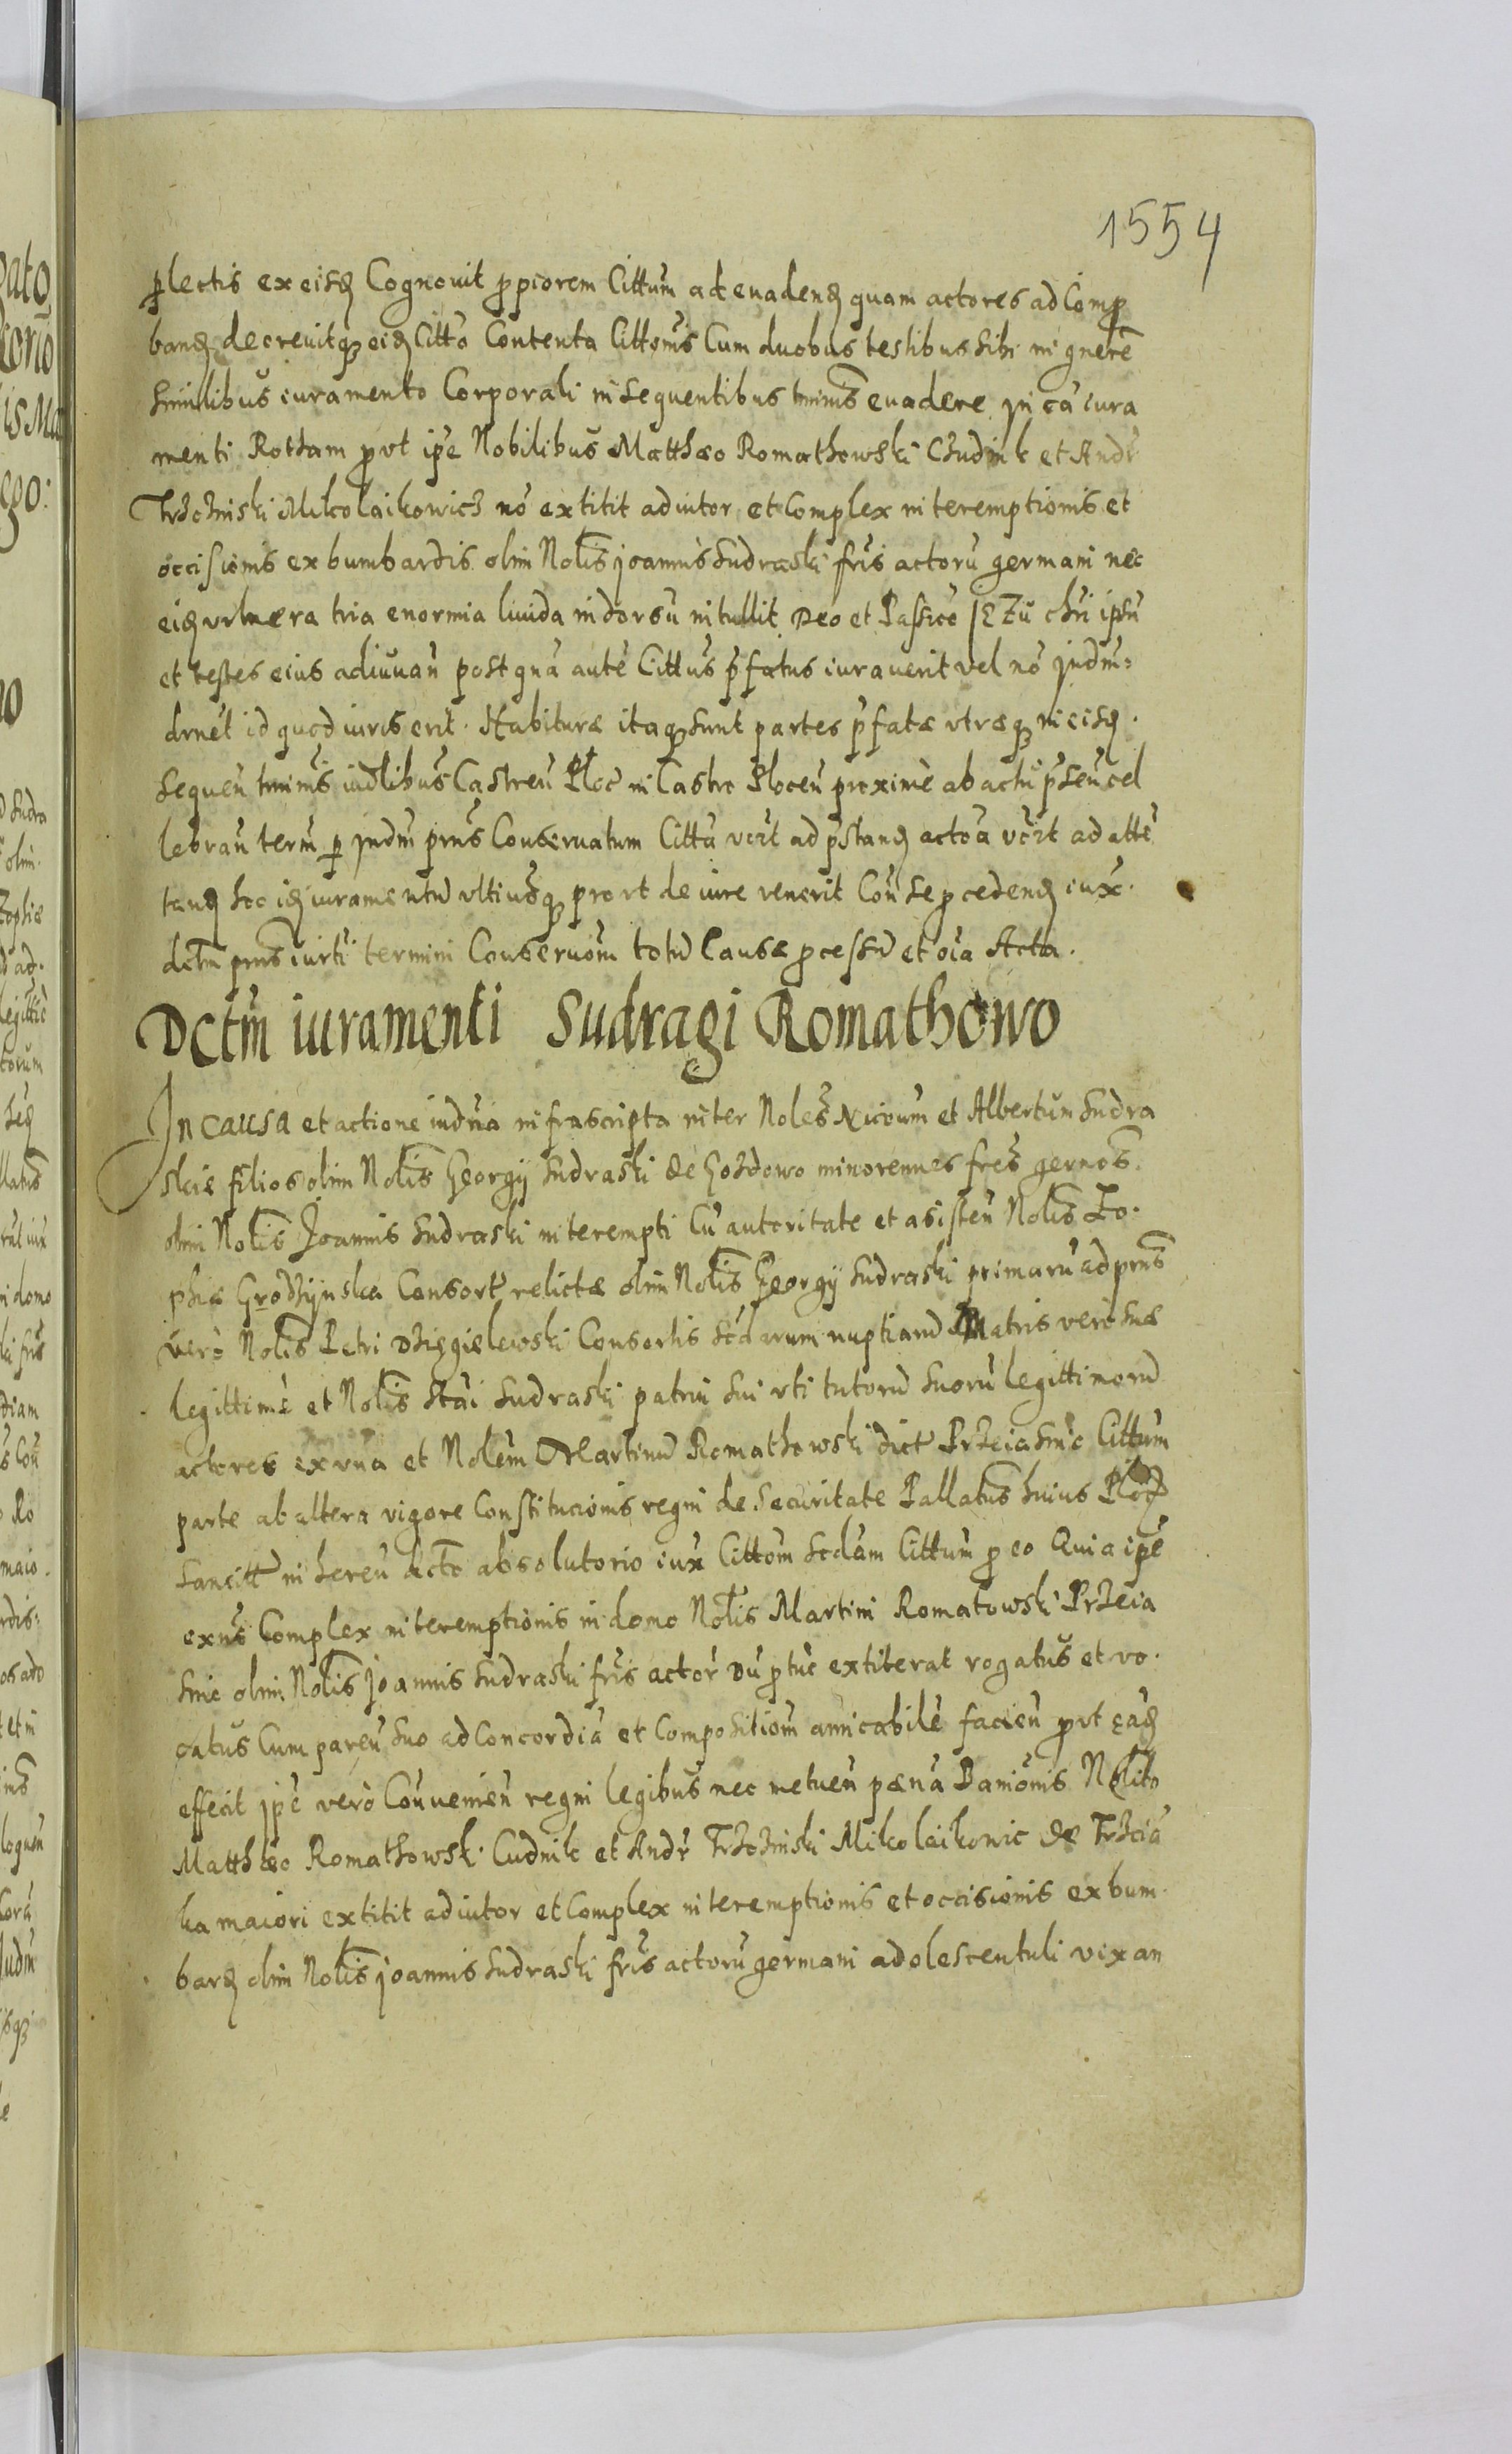 1554
plectis ex eisdem Cognouit ppiorem Cittum ad euadend quam actores ad Comp
band decreuitq eid Citto Contenta Cittonis Cum duobus testibus sibi in gnere
similibus iuramento Corporali in sequentibus tminis euadere in ea iura
menti Rotham put ipe Nobilibus Matthæo Romathowski Chudnik et Andr
Trzcinski Mikolaikowicz nō extitit adiutor et Complex interemptionis et
occisionis ex bumbardis olim Nolis Joannis Sudraski fris actorū germani nec
eid vulnera tria enormia liuida in dorsū intullit Deo et Passico JEZu chri ipsū
et testes eius adiuuan post qnā autē Cittus pfatus iurauerit vel nō Judm
drnet id quod iuris erit. Habituræ itaq sunt partes pfatæ vtræq in eisd.
sequen tminis iudlibus Castren Ploc in Castro Plocen proxime ab actu psen cel
lebran term p Judm pns Conseruatum Cittū vert ad pstand actoā vert ad atte
tand hoc id iuramentū vltiusq prout de iure venerit Con se pcedend iux.
dctm pns iurti termini Conseruom totū Causæ pcessū et oia Acta.
Dctm iuramenti Sudragi Romathowo
In causa et actione iudria infrascripta inter Noles Nicoum et Albertum Sudra
skie filios olim Nolis Georgij Sudraski de Gozdowo minorennes fres gernos.
olim Nolis Joannis Sudraski interempti Cū autoritate et asisten Nolis Zo.
phiæ Grodzijnska Consort relictæ olim Nolis Georgij Sudraski primarū ad pns
vero Nolis Petri Dzięgielewski Consortis scdarum nuptiarū Matris vero suæ
legittime et Nolis Stai Sudraski patrui sui vti tutorū suorū legittimorū
actores ex vna et Nolem Martinū Romathowski dict Przeiasnic Cittum
parte ab altera vigore Constitucionis regni de securitate Pallatus huius Ploc
sancitt inheren dcto absolutorio iux Cittom scdam Cittum p eo Quia ipe
exns Complex interemptionis in domo Nolis Martini Romatowski Przeia
snic olim Nolis Joannis Sudraski fris actor Dū ptuc extiterat rogatus et vo.
catus Cum paren suo ad Concordiā et Compositiom amicabile facien put ead
effecit ipe vero Conuenien regni legibus nec metuen pænā Banionis Nolibo
Matthæo Romathowski Cudnik et Andr Trzcinski Mikolaikowic de Trzcia
ka maiori extitit adiutor et Complex interemptionis et occisionis ex bum.
bard olim Nolis Joannis Sudraski fris actorū germani adolescentuli vix an